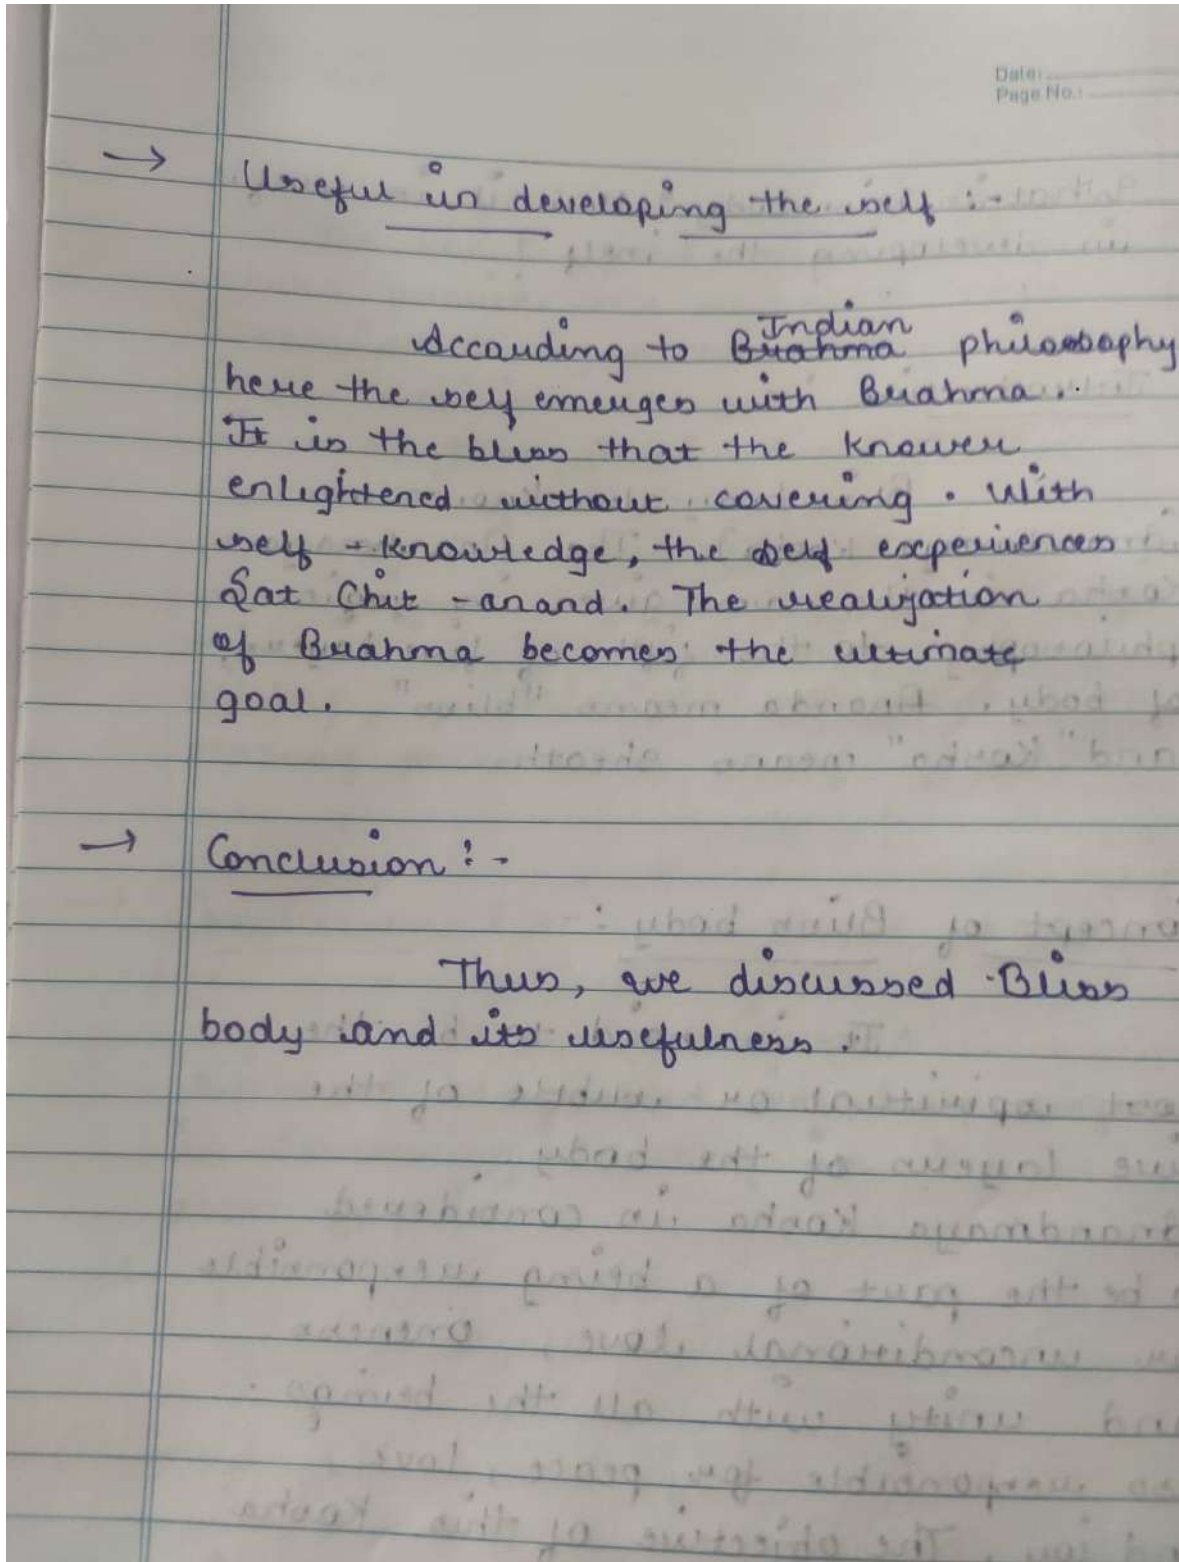 Date:
Page No.:
→ Useful in developing the self :-
According to Indian philosophy
here the self emerges with Brahma.
It is the bliss that the knower
enlightened without covering. With
self-knowledge, the self experiences
Sat Chit-anand. The realization
of Brahma becomes the ultimate
goal.
→ Conclusion :-
Thus, we discussed Bliss
body and its usefulness.